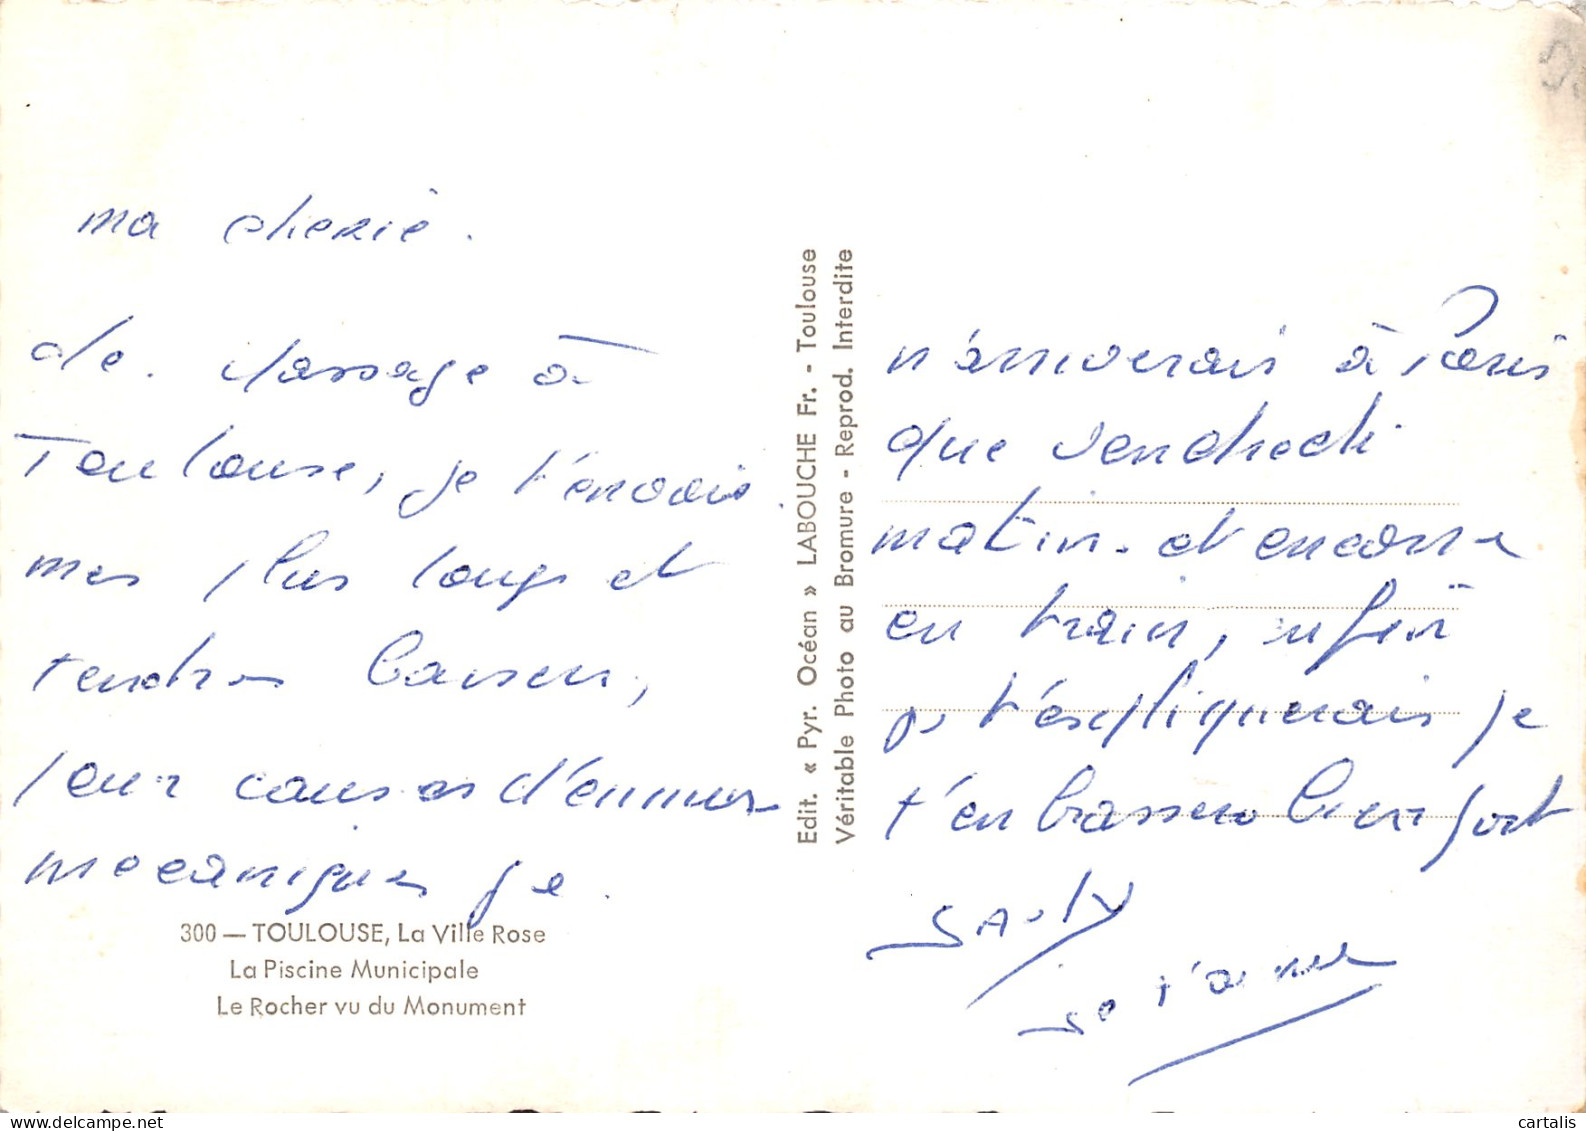 ma cherie.
de. passage à
Toulouse, je t'envois
mes plus longs et
tendres baisers,
pour causes d'ennuis
mecaniques je.
300 — TOULOUSE, La Ville Rose
La Piscine Municipale
Le Rocher vu du Monument
Edit. « Pyr. Océan » LABOUCHE Fr. - Toulouse
Véritable Photo au Bromure - Reprod. Interdite
n'arriverais à Paris
que vendredi
matin. et encore
en train, enfin
t'expliquerais je
t'embrasse bien fort
je t'aime
cartalis
delcampe.net